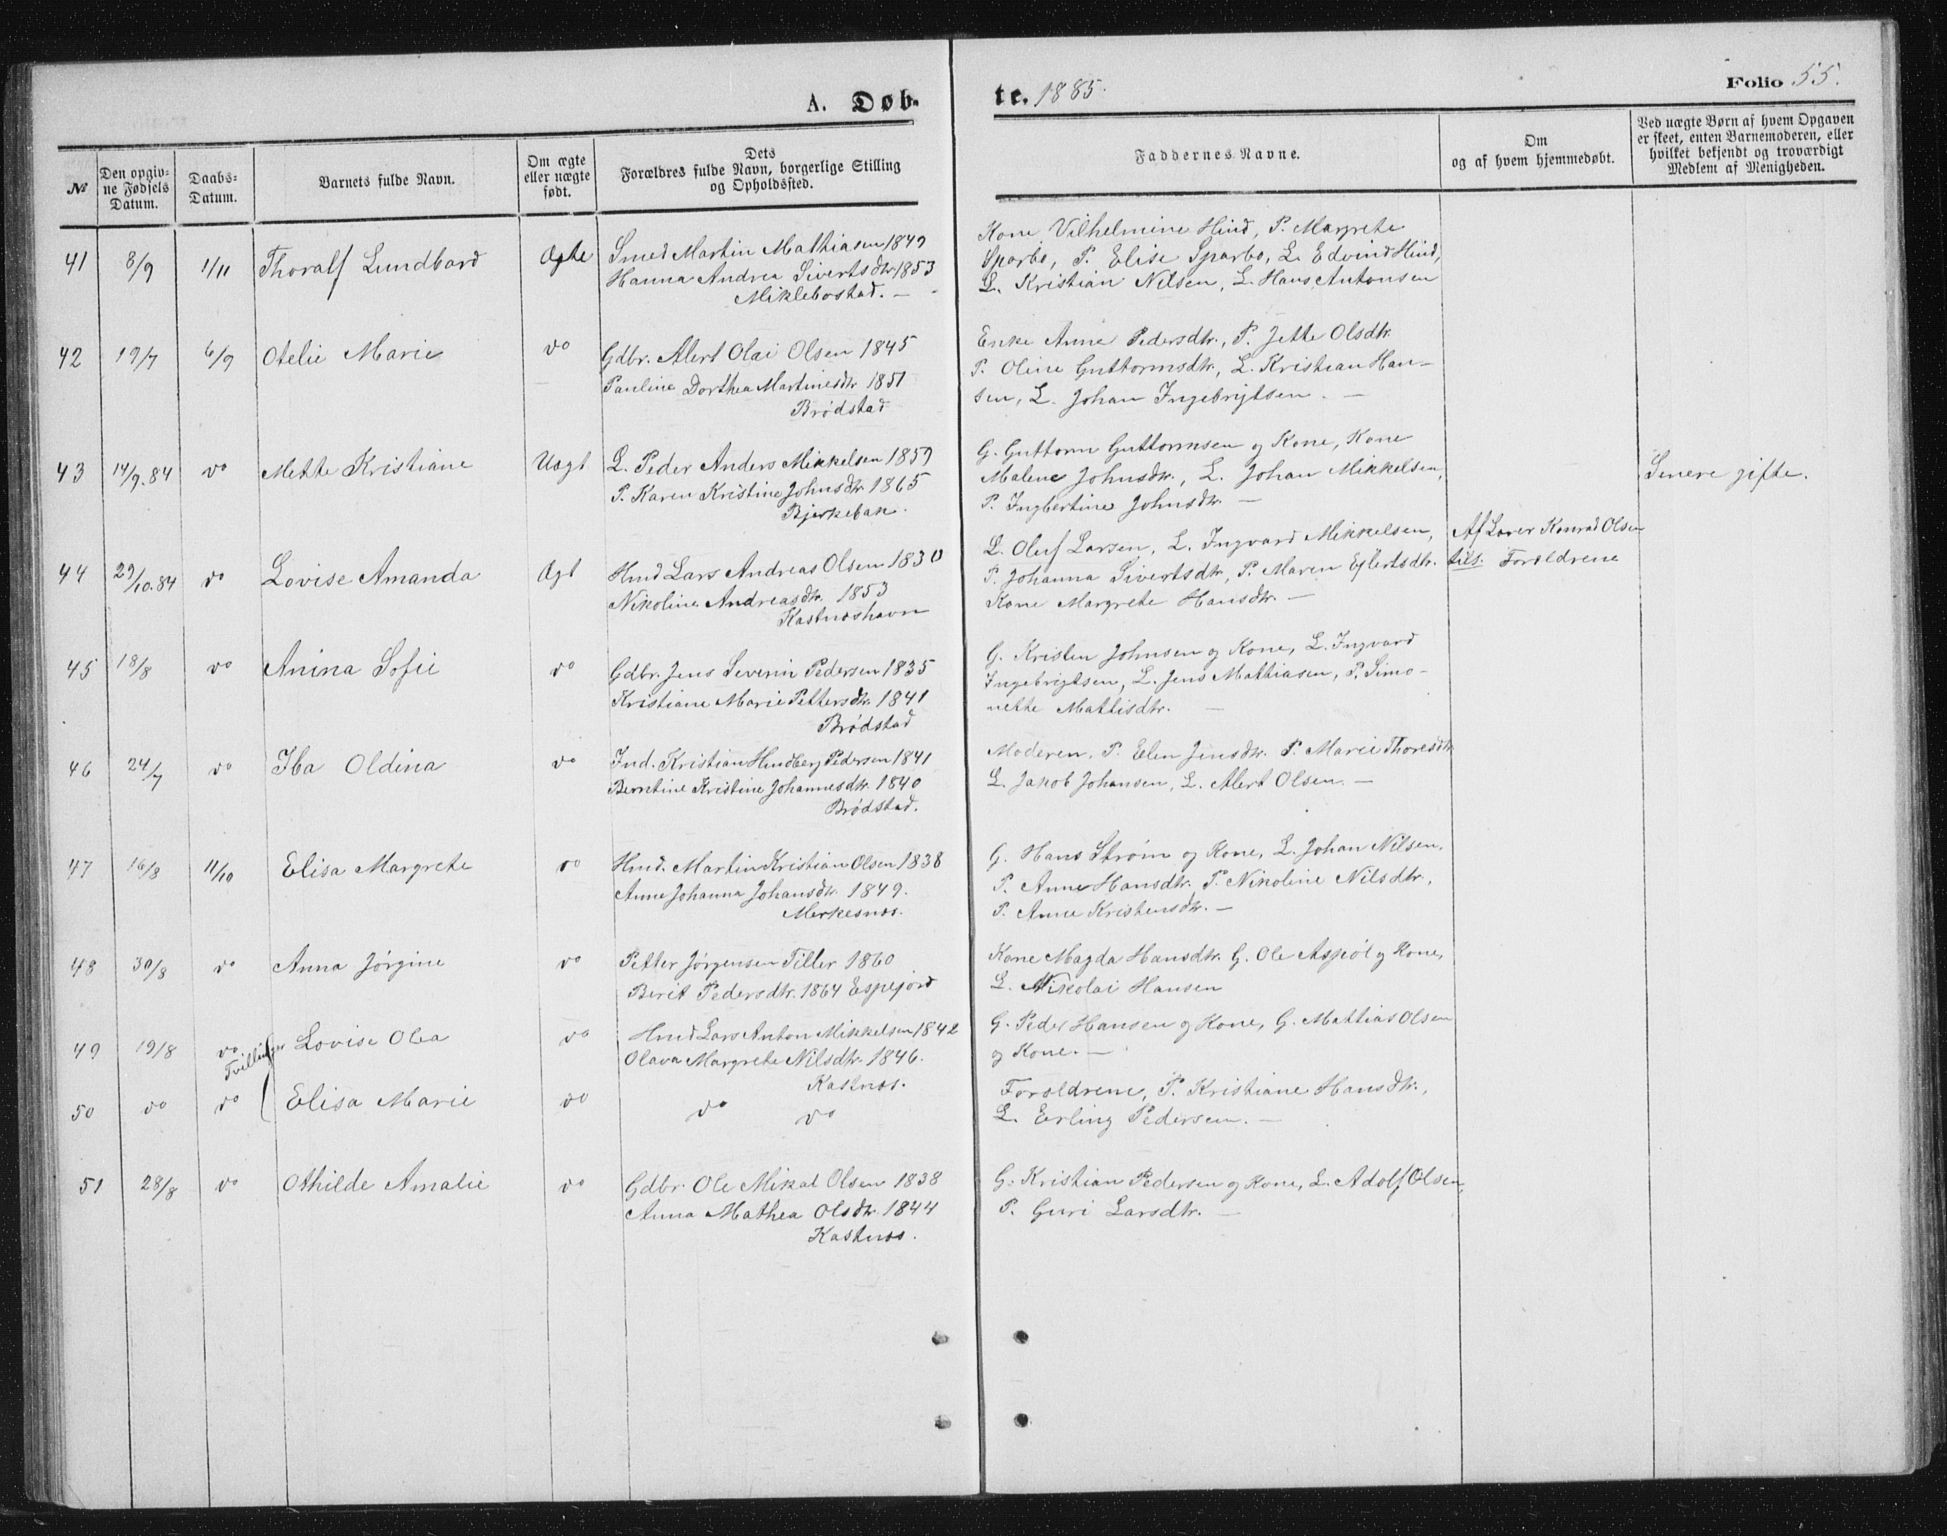 A. Døb- te. 1885. Folio 55.
№
Den opgiv-
ne Fødsels
Datum.
Daabs-
Datum.
Barnets fulde Navn.
Om ægte
eller uægte
født.
Dets
Forældres fulde Navn, borgerlige Stilling
og Opholdssted.
Faddernes Navne.
Om
og af hvem hjemmedøbt.
Ved uægte Børn af hvem Opgaven
er skeet, enten Barnemoderen, eller
hvilket bekjendt og troværdigt
Medlem af Menigheden.
41 8/9 1/11 Thoralf Lundbord Ægte
Smed Martin Mathiasen 1849
Hanna Andrea Sivertsdtr 1853
Miklebostad. —
Kone Vilhelmine Hind, P. Margrete
Sparbo, P. Elise Sparbo, L. Edvind Hind,
L. Kristian Nilsen, L. Hans Antonsen
42 19/7 6/9 Otelie Marie do
Gdbr. Alert Olai Olsen 1845
Pauline Dorthea Martinesdtr 1851
Brödstad
Enke Anne Pedersdtr., P. Jette Olsdtr.
P. Oline Guttormsdtr, L. Kristian Han-
sen, L. Johan Ingebrigtsen. —
43 14/9.84 do Mette Kristiane Uægt
L. Peder Anders Mikkelsen 1859
P. Karen Kristine Johnsdtr 1865
Bjerkebak.
G. Guttorm Guttormsen og Kone, Kone
Malene Johnsdtr., L. Johan Mikkelsen,
P. Ingbertine Johnsdtr. —
Senere gifte.
44 29/10.84 do Lovise Amanda Ægt
Hmd Lars Andreas Olsen 1830
Nikoline Andreasdtr. 1853
Kastnæshavn
L. Oluf Larsen, L. Ingvard Mikkelsen,
P. Johanna Sivertsdtr, P. Maren Ejlertsdtr.
Kone Margrete Hansdtr. —
Af Lærer Konrad Olsen
tils. Forældrene
45 18/8 do Anina Sofie do
Gdbr. Jens Severin Pedersen 1835
Kristiane Marie Pettersdtr. 1841
Brödstad
G. Kristen Johnsen og Kone, L. Ingvard
Ingebrigtsen, L. Jens Mathiasen, P. Simo-
nette Mattisdtr. —
46 24/7 do Iba Oldina do
Ind. Kristian Hindberg Pedersen 1841
Berntine Kristine Johannesdtr. 1840
Brödstad.
Moderen, P. Elen Jensdtr. P. Marie Thoresdtr
L. Jakob Johansen, L. Alert Olsen. —
47 16/8 11/10 Elisa Margrete do
Hmd. Martin Kristian Olsen 1838
Anne Johanna Johansdtr. 1849.
Merkesnæs.
G. Hans Strøm og Kone, L. Johan Nilsen,
P. Anne Hansdtr. P. Nikoline Nilsdtr.,
P. Anne Kristensdtr. —
48 30/8 do Anna Jörgine do
Petter Jørgensen Tiller 1860
Berit Pedersdtr. 1864 Espejord
Kone Magda Hansdtr. G. Ole Aspöl og Kone,
L. Nikolai Hansen
49 19/8 do Tvillinger Lovise Olea do
Hmd Lars Anton Mikkelsen 1842
Olava Margrete Nilsdtr. 1846.
Kastnæs.
G. Peder Hansen og Kone, G. Mattias Olsen
og Kone. —
50 do do Elisa Marie do
do do
Forældrene, P. Kristiane Hansdtr.,
L. Erling Pedersen. —
51 28/8 do Othilde Amalie do
Gdbr. Ole Mikal Olsen 1838
Anna Mathea Olsdtr. 1844
Kastnæs.
G. Kristian Pedersen og Kone, L. Adolf Olsen,
P. Guri Larsdtr. —